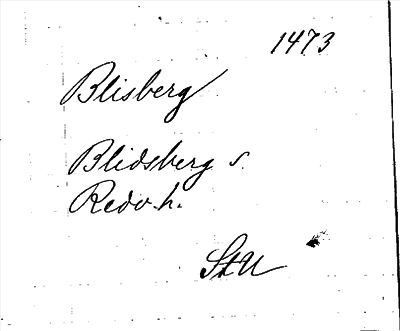 1473
Blisberg
Blidsberg s.
Redv. h.
StU